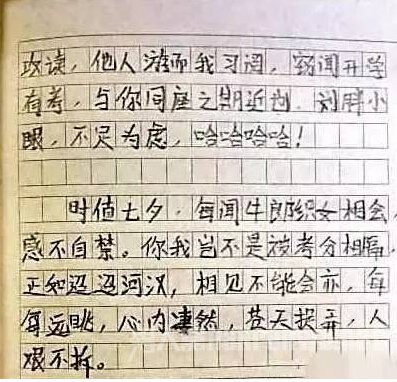 攻读，他人游而我习词，窃闻开学
有考，与你同座之期近到，刘胖小
眼，不足为虑，哈哈哈哈！
时值七夕，每闻牛郎织女相会，
感不自禁。你我岂不是被考分相隔，
正如迢迢河汉，相见不能会亦，每
每远眺，心内凄然，苍天捉弄，人
艰不拆。